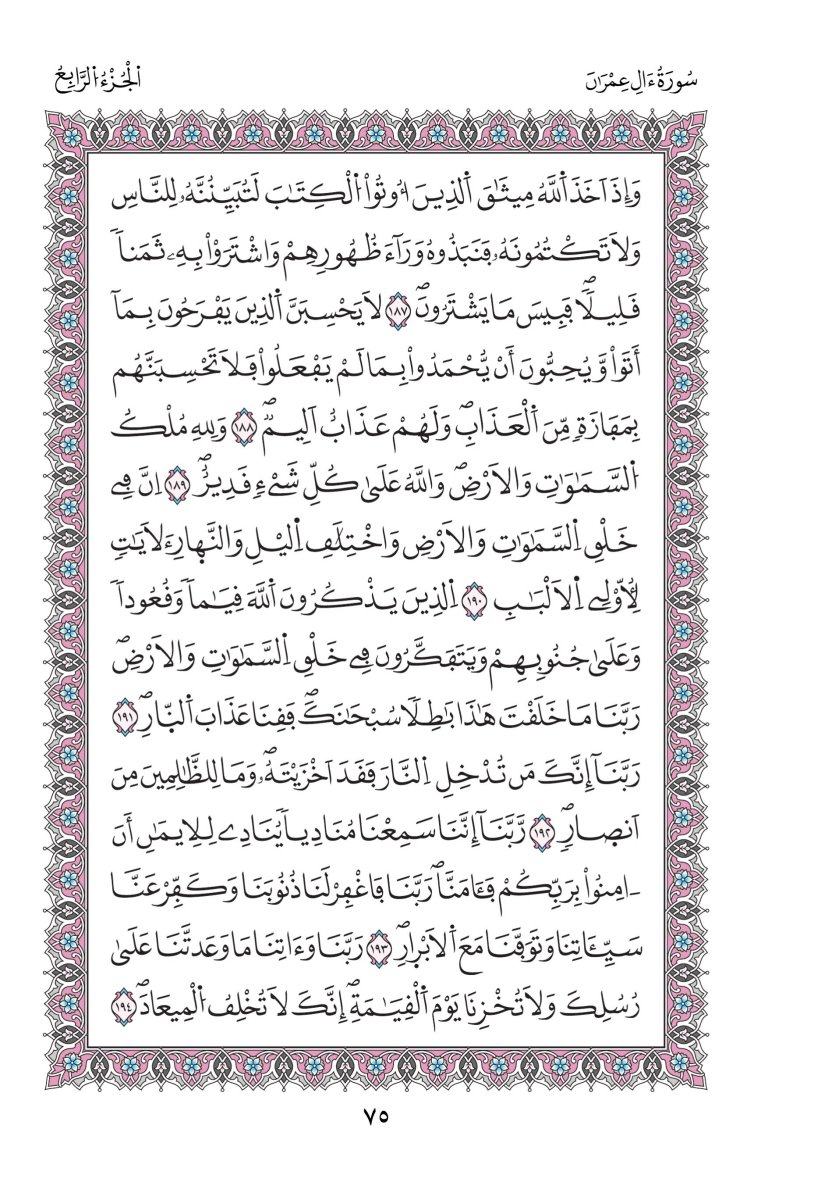 سُورَةُ ءَالِ عِمْرَٰنَ
اَ۬لْجُزْءُ اُ۬لرَّابِعُ
وَإِذَ اَخَذَ اَ۬للَّهُ مِيثَٰقَ اَ۬لذِينَ أُوتُواْ اُ۬لْكِتَٰبَ لَتُبَيِّنُنَّهُۥ لِلنَّاسِ
وَلَا تَكْتُمُونَهُۥ فَنَبَذُوهُ وَرَآءَ ظُهُورِهِمْ وَاشْتَرَوْاْ بِهِۦ ثَمَناٗ
قَلِيلٗاۖ فَبِيسَ مَا يَشْتَرُونَۖ ١٨٧ لَا يَحْسِبَنَّ اَ۬لذِينَ يَفْرَحُونَ بِمَآ
أَتَواْ وَّيُحِبُّونَ أَنْ يُّحْمَدُواْ بِمَا لَمْ يَفْعَلُواْ فَلَا تَحْسِبَنَّهُم
بِمَفَازَةٖ مِّنَ اَ۬لْعَذَابِۖ وَلَهُمْ عَذَابٌ اَلِيمٞۖ ١٨٨ وَلِلهِ مُلْكُ
اُ۬لسَّمَٰوَٰتِ وَالَارْضِۖ وَاللَّهُ عَلَىٰ كُلِّ شَےْءٖ قَدِيرٌۖ ١٨٩ اِنَّ فِے
خَلْقِ اِ۬لسَّمَٰوَٰتِ وَالَارْضِ وَاخْتِلَٰفِ اِ۬ليْلِ وَالنَّهارِ ءَلَايَٰتٖ
لِّأُوْلِے اِ۬لَالْبَٰبِ ١٩٠ اِ۬لذِينَ يَذْكُرُونَ اَ۬للَّهَ قِيَٰماٗ وَقُعُوداٗ
وَعَلَىٰ جُنُوبِهِمْ وَيَتَفَكَّرُونَ فِے خَلْقِ اِ۬لسَّمَٰوَٰتِ وَالَارْضِۖ
رَبَّنَا مَا خَلَقْتَ هَٰذَا بَٰطِلٗا سُبْحَٰنَكَۖ فَقِنَا عَذَابَ اَ۬لنّ۪ارِۖ ١٩١
رَبَّنَآ إِنَّكَ مَن تُدْخِلِ اِ۬لنَّارَ فَقَدَ اَخْزَيْتَهُۥۖ وَمَا لِلظَّٰلِمِينَ مِنَ
اَنص۪ارٖۖ ١٩٢ رَّبَّنَآ إِنَّنَا سَمِعْنَا مُنَادِياٗ يُنَادِے لِلِايمَٰنِ أَنَ
اٰمِنُواْ بِرَبِّكُمْ فَـَٔامَنَّاۖ رَبَّنَا فَاغْفِرْ لَنَا ذُنُوبَنَا وَكَفِّرْ عَنَّا
سَيِّـَٔاتِنَا وَتَوَفَّنَا مَعَ اَ۬لَابْر۪ارِۖ ١٩٣ رَبَّنَا وَءَاتِنَا مَا وَعَدتَّنَا عَلَىٰ
رُسُلِكَ وَلَا تُخْزِنَا يَوْمَ اَ۬لْقِيَٰمَةِۖ إِنَّكَ لَا تُخْلِفُ اُ۬لْمِيعَادَۖ ١٩٤
٧٥